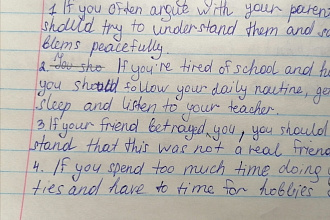 1 If you often argue with your paren
should try to understand them and so
blems peacefully.
2. If you're tired of school and h
you should follow your daily routine, ge
sleep and listen to your teacher.
3 If your friend betrayed you, you should
stand that this was not a real frien
4. If you spend too much time doing
ties and have to time for hobbies